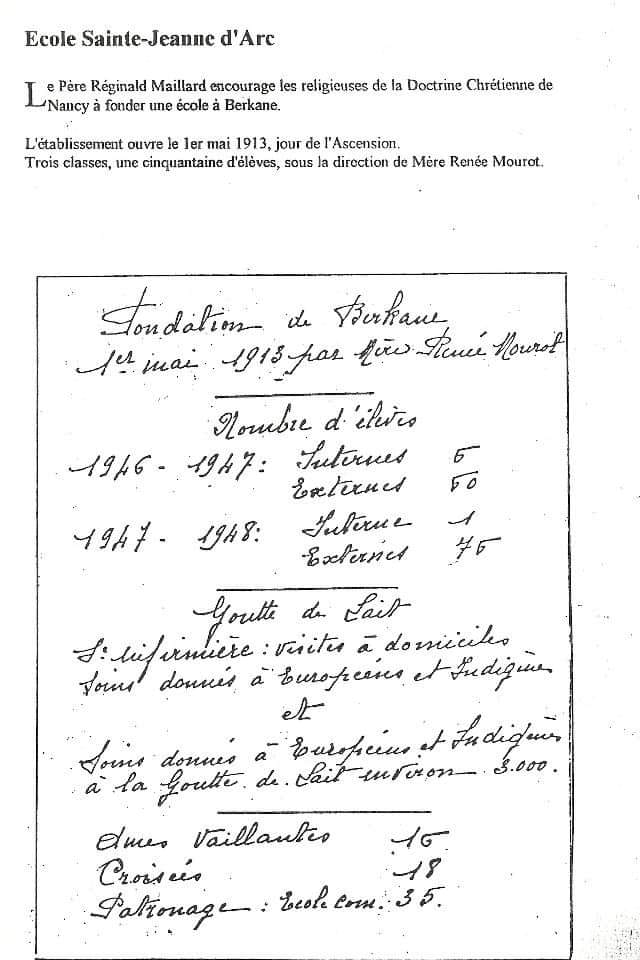 Ecole Sainte-Jeanne d'Arc
Le Père Réginald Maillard encourage les religieuses de la Doctrine Chrétienne de
Nancy à fonder une école à Berkane.
L'établissement ouvre le 1er mai 1913, jour de l'Ascension.
Trois classes, une cinquantaine d'élèves, sous la direction de Mère Renée Mourot.
Fondation de Berkane
1er mai 1913 par Mère Renée Mourot
Nombre d'élèves
1946 - 1947: Internes 5
Externes 50
1947 - 1948: Interne 1
Externes 75
Goutte de Lait
Sr Infirmière : visites à domiciles
Soins donnés à Européens et Indigènes
et
Soins donnés à Européens et Indigènes
à la Goutte de Lait environ 3.000.
Ames Vaillantes 15
Croisées 18
Patronage : Ecole com. 35.